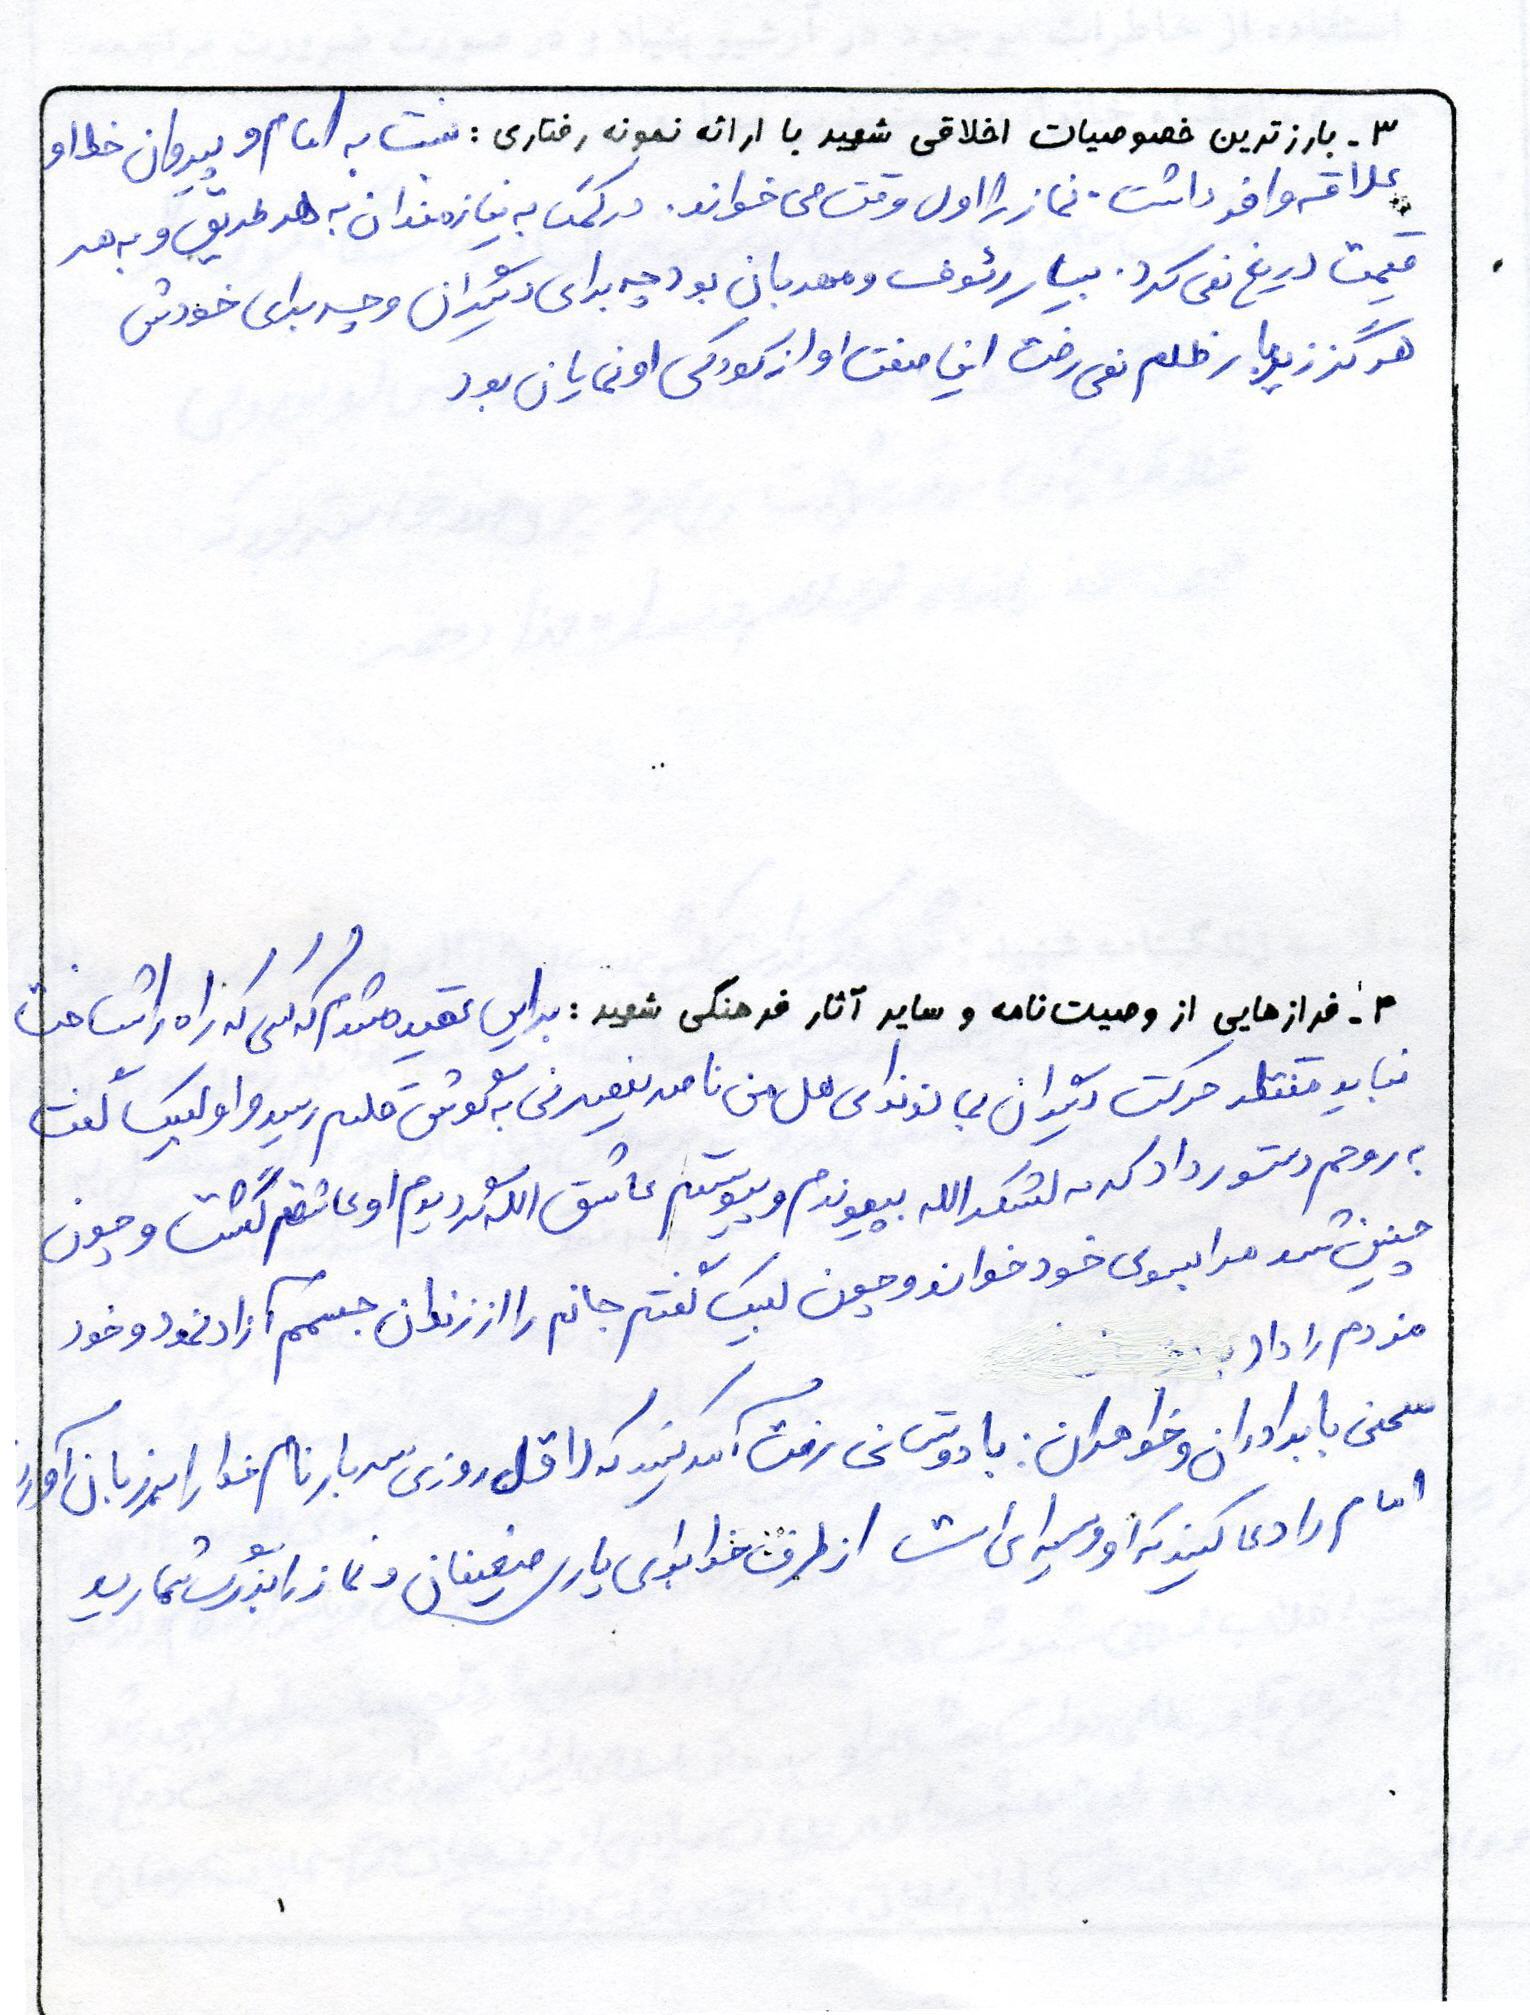 ۳ـ بارزترین خصوصیات اخلاقی شهید با ارائه نمونه رفتاری : نسبت به امام و پیروان خط او
علاقه وافر داشت . نماز را اول وقت می خواند . در کمک به نیازمندان به هر طریق و به هر
قیمت دریغ نمی کرد . بسیار رئوف و مهربان بود چه برای دیگران و چه برای خودش
هرگز زیر بار ظلم نمی رفت این صفت او از کودکی او نمایان بود
۴ـ فرازهایی از وصیت نامه و سایر آثار فرهنگی شهید : بر این عقیده شدم که کسی که راه را شناخت
نباید منتظر حرکت دیگران بماند ندای هل من ناصر ینصرنی به گوش قلبم رسید و او لبیک گفت
به روحم دستور داد که به لشکر الله بپیوندم و پیوستم عاشق الله گردیدم او عاشقم گشت و چون
چنین شد مرا بسوی خود خواند و چون لبیک گفتم جانم را از زندان جسمم آزاد نمود و خود
مزدم را داد
سخنی با برادران و خواهران : با دوستانی رفت آمد کنید که لااقل روزی سه بار نام خدا را بر زبان آورند
امام را دعا کنید که او وسیله ای است از طرف خدا برای یاری ضعیفان و نماز را بزرگ شمارید